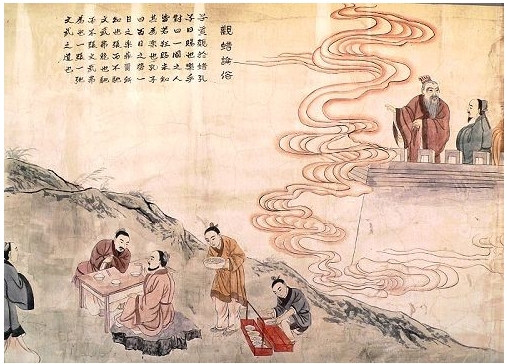 觀蜡論俗
子貢觀於蜡孔
子曰賜也樂乎
對曰一國之人
皆若狂賜未知
其為樂也孔子
曰百日之勞一
日之樂非爾所
知也張而不弛
文武弗能也弛
而不張文武弗
為也一張一弛
文武之道也